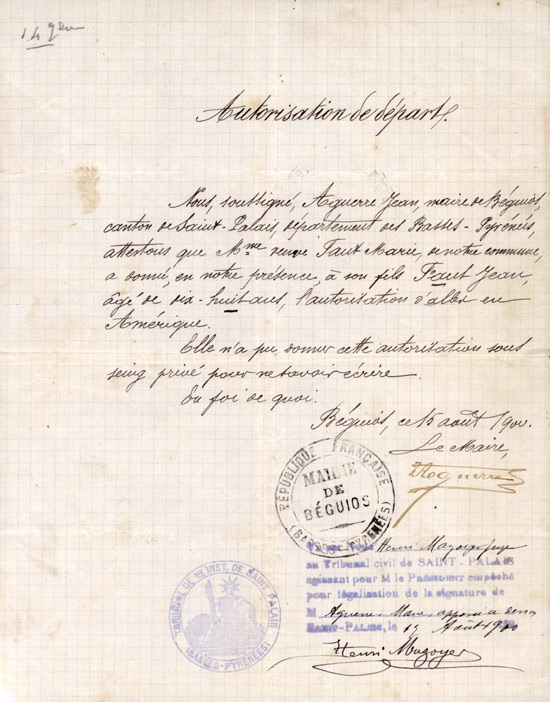 14
Autorisation de départ.
Nous, soussigné, Aguerre Jean, maire de Béguios,
canton de Saint-Palais, département des Basses-Pyrénées,
attestons que Mme veuve Faut Marie, de notre commune,
a donné, en notre présence, à son fils Faut Jean,
âgé de dix-huit ans, l'autorisation d'aller en
Amérique.
Elle n'a pu donner cette autorisation sous
seing privé pour ne savoir écrire.
En foi de quoi.
Béguios, ce 15 août 1900.
Le Maire,
Aguerre
RÉPUBLIQUE FRANÇAISE
MAIRIE
DE
BÉGUIOS
(BASSES-PYRÉNÉES)
Henri Mazoyer juge
au Tribunal civil de SAINT-PALAIS
agissant pour M le Président empêché
pour légalisation de la signature de
M Aguerre Maire apposée
SAINT-PALAIS, le 17 Août 1900
Henri Mazoyer
TRIBUNAL DE 1re INST. DE SAINT PALAIS
(BASSES-PYRÉNÉES)